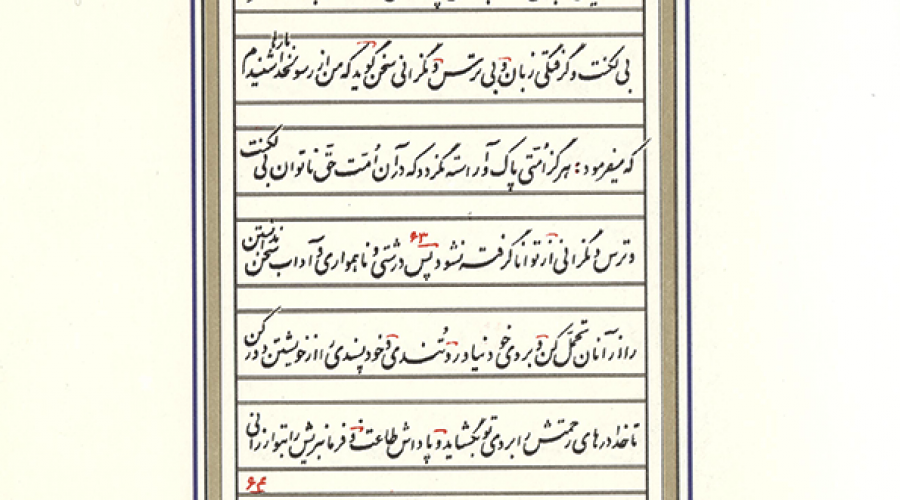 بی لکنت و گرفتگی زبان و بی ترس و نگرانی سخن گوید که من از رسولخدا شنیدم بارها
که میفرمود: هرگز اُمّتی پاک و آراسته نگردد که در آن اُمّت حقّ ناتوان بی لکنت
و ترس و نگرانی از توانا گرفته نشود ۶۳ پس درشتی و ناهمواری و آداب سخن ندانستن
را از آنان تحمّل کن و بر دی خود نیاور و تُندی و خودپسندی را از خویشتن دور کن
تا خدا درهای رحمتش را بر دی تو بگشاید و پاداش طاعت و فرمانبریش را بتو ارزانی
۶۴